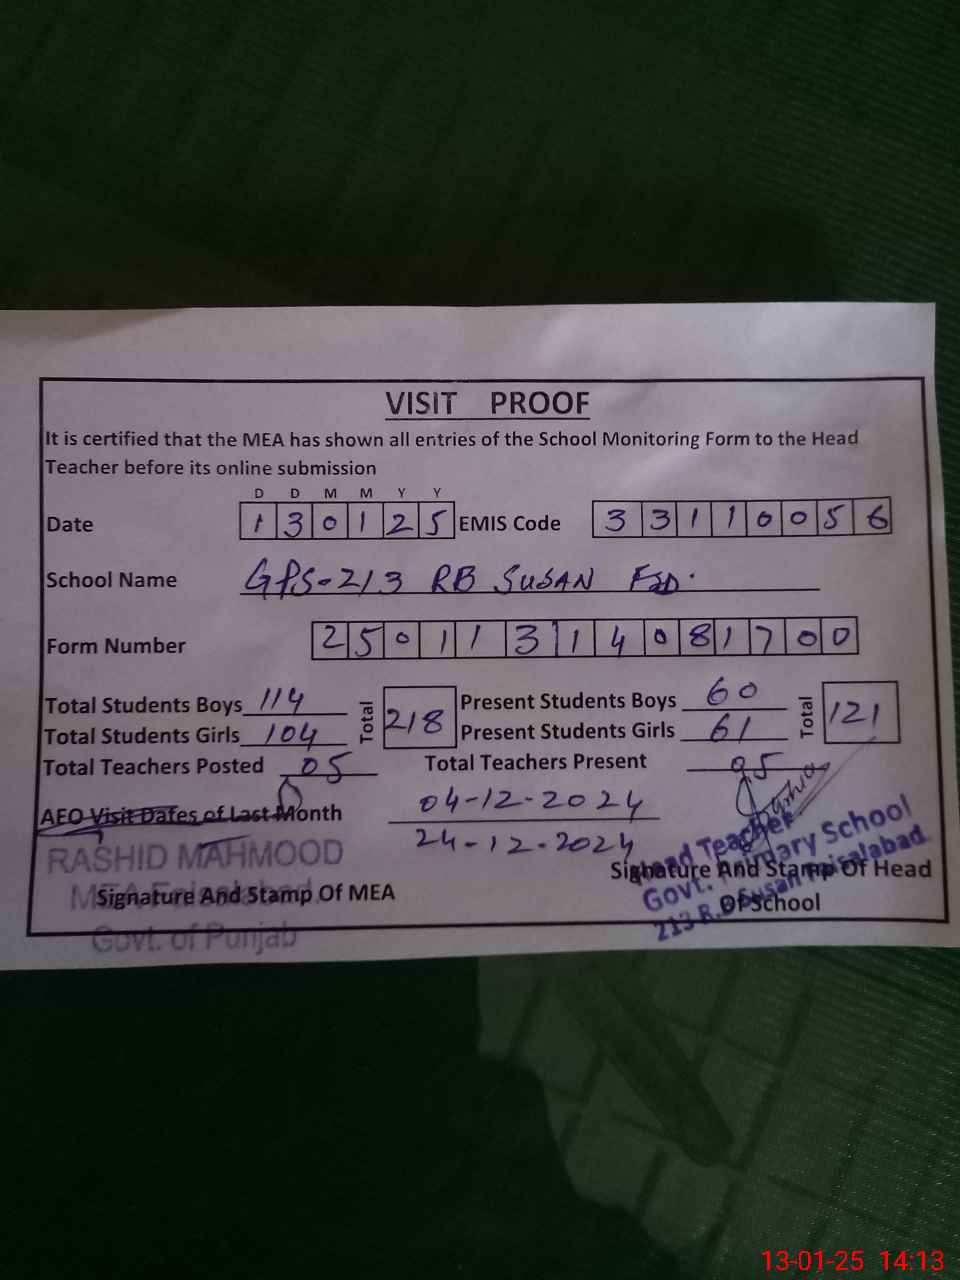 VISIT PROOF
It is certified that the MEA has shown all entries of the School Monitoring Form to the Head
Teacher before its online submission
D D M M Y Y
Date 1 3 0 1 2 5 EMIS Code 3 3 1 1 0 0 5 6
School Name GPS-213 RB SUSAN FSD.
Form Number 2 5 0 1 1 3 1 4 0 8 1 7 0 0
Total Students Boys 114 Total 218 Present Students Boys 60 Total 121
Total Students Girls 104 Present Students Girls 61
Total Teachers Posted 05 Total Teachers Present 05
AEO Visit Dates of Last Month 04-12-2024
24-12-2024
RASHID MAHMOOD
MEA Faisalabad
Govt. of Punjab
Signature And Stamp Of MEA
Head Teacher
Govt. Primary School
213 R.B Susan Faisalabad
Signature And Stamp Of Head
Of School
13-01-25 14:13